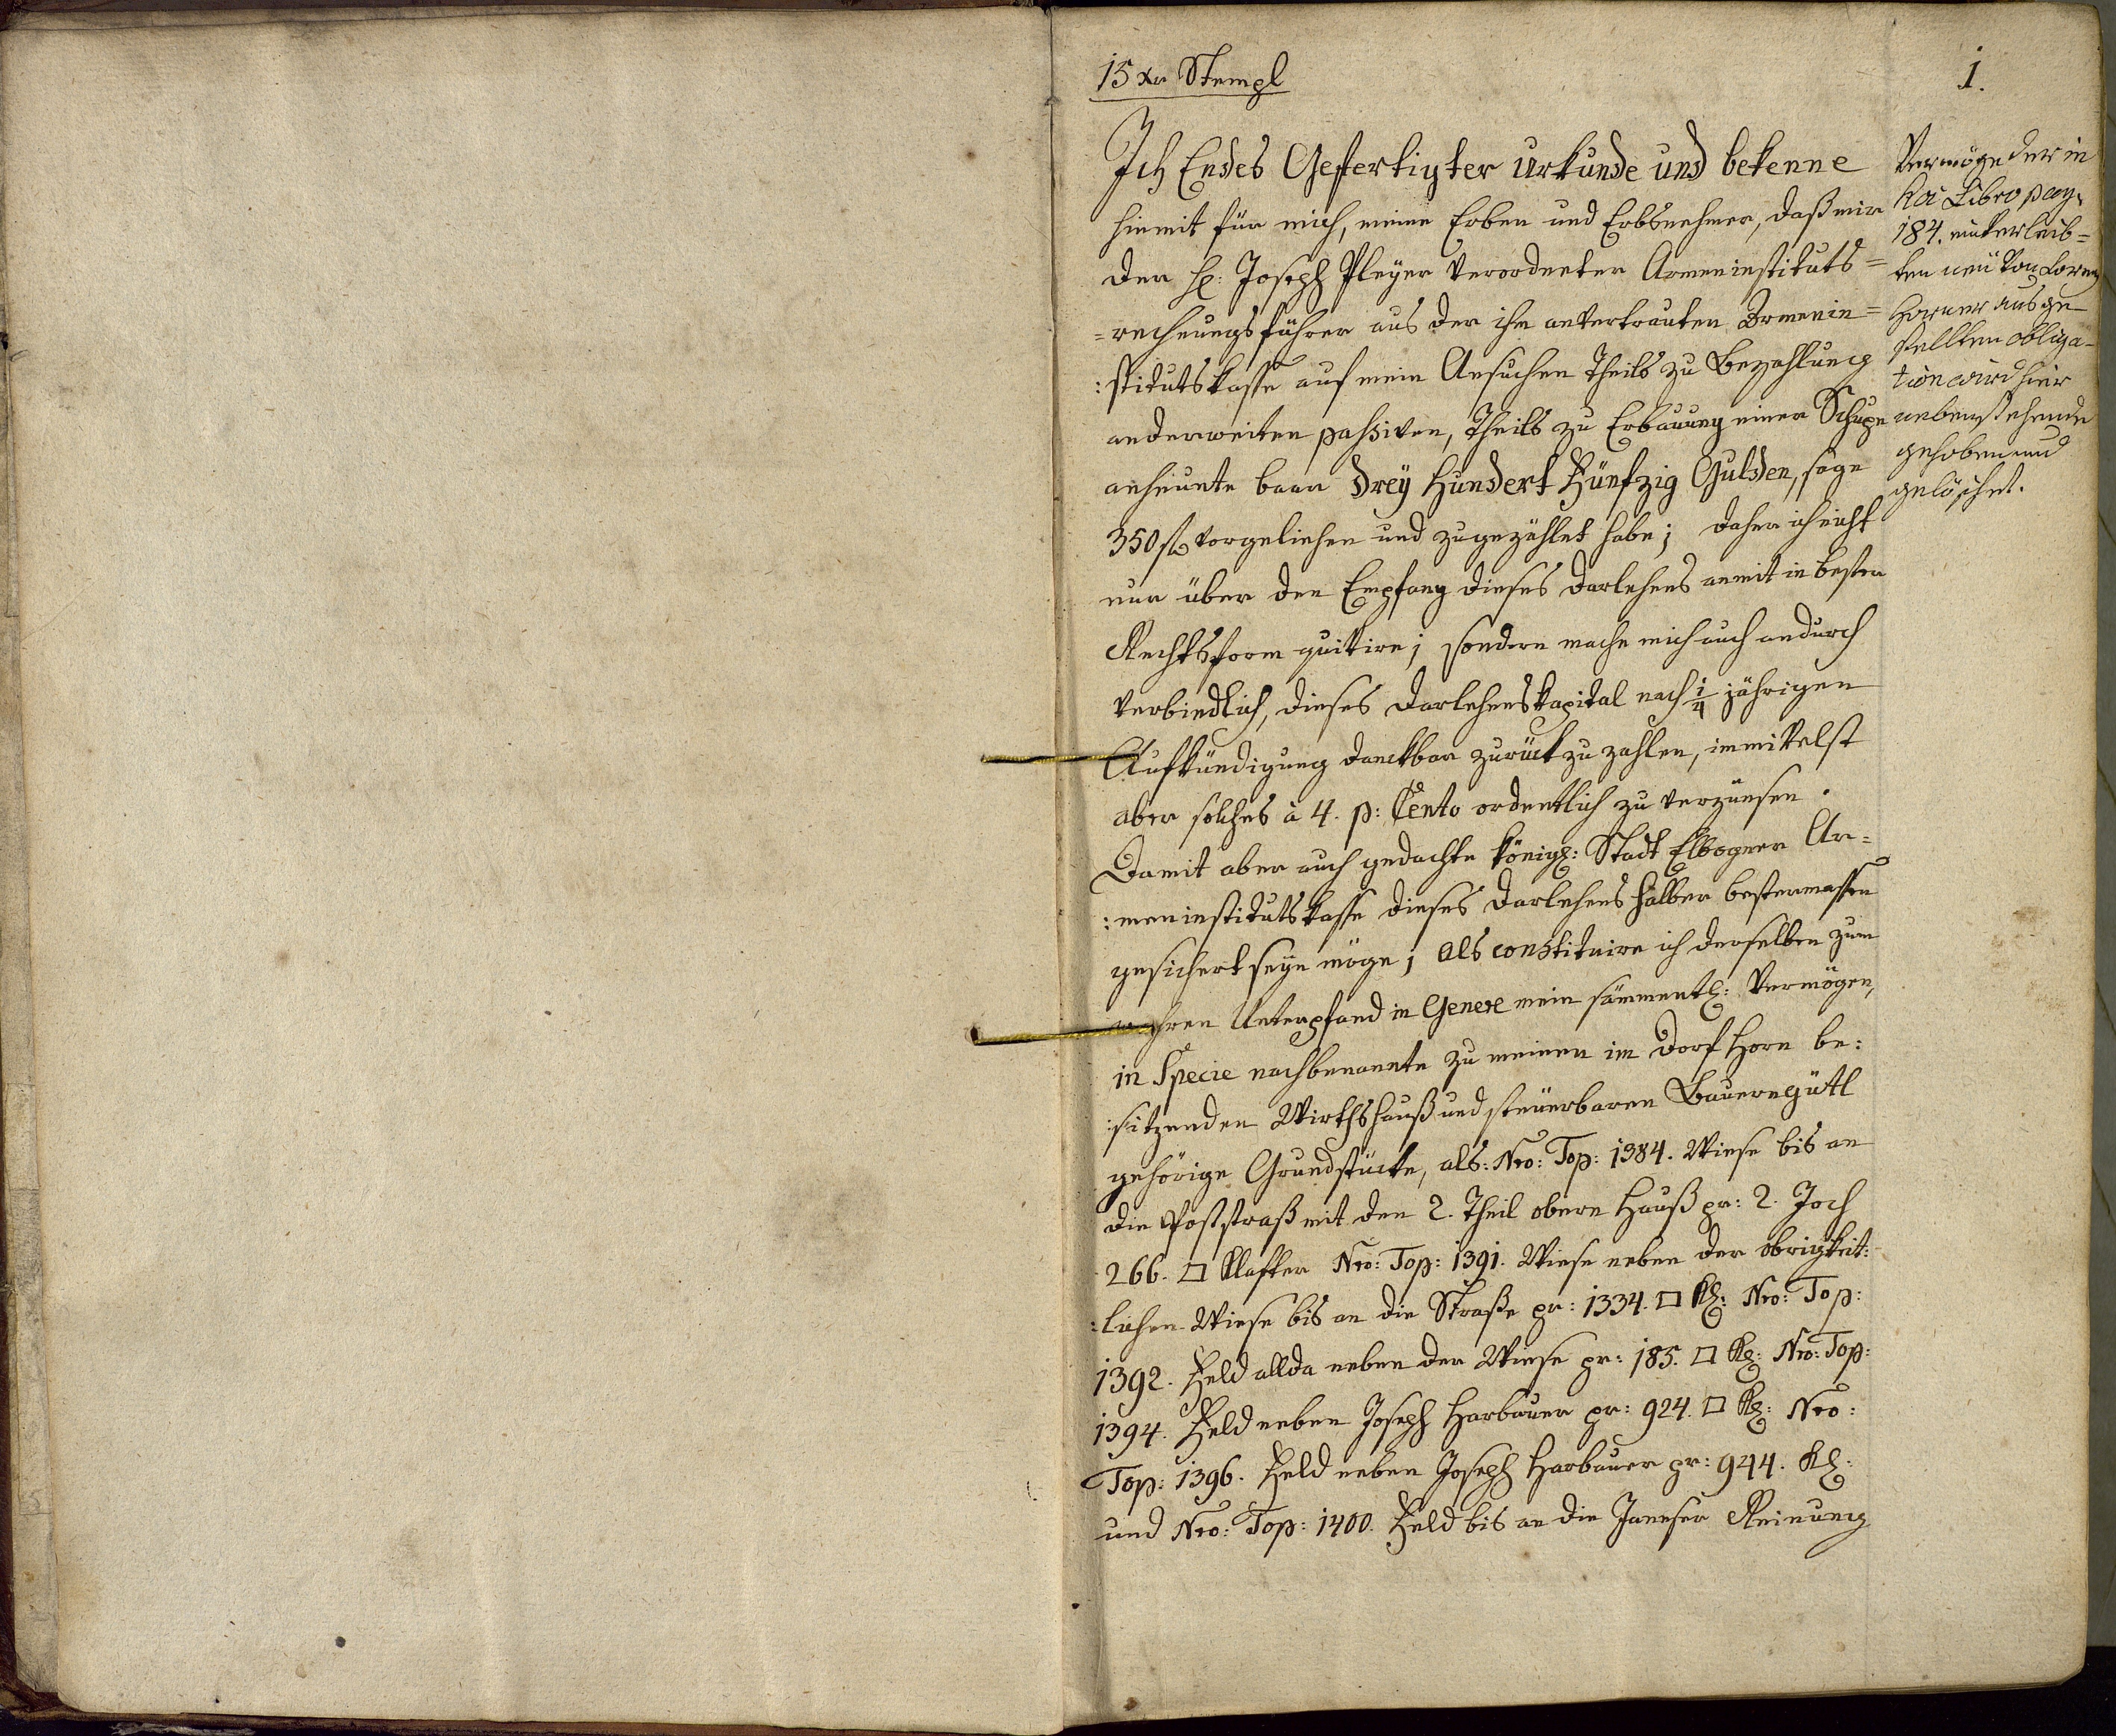 15 xr Stempl
1.
Ich Endes Gefertigter Urkunde und bekenne
hiemit für mich, meine Erben und Erbsnehmer, daß mir
der H: Joseph Pleyer verordneter Armeninstituts=
=rechnungsführer aus der ihm anvertrauten Armenin=
:stitutskasse auf mein Ansuchen theils zu Bezahlung
anderweiten passiven, theils zu Erbauung einer Schupe
anheunte baar Drey Hundert Fünfzig Gulden, sage
350 fl vorgeliehen und zugezählet habe; daher ich nicht
nur über den Empfang dieses Darlehens anmit in bester
Rechtsform quitire; sondern mache mich auch andurch
verbindlich, dieses Darlehenskapital nach 1/4 jährigen
Aufkündigung danckbar zurück zu zahlen, immittelst
aber solches à 4. p: Cento ordentlich zu verzünsen.
Damit aber auch gedachte königl: Stadt Elbogner Ar=
:meninstitutskasse dieses Darlehens halber bestermassen
gesichert seyn möge; als constituire ich derselben zum
wahren Unterpfand in Genere mein sämmentl: Vermögen,
in Specie nachbenannte zu meinen im Dorf Horn be:
:sitzenden Wirthshauß und steuerbaren Bauerngütl
gehörige Grundstücke, als: Nro: Top: 1384. Wiese bis an
die Poststraß mit den 2. Theil obern Hauß pr: 2. Joch
266. □ Klafter Nro: Top: 1391. Wiese neben der obrigkeit:
:lichen Wiese bis an die Straße pr: 1334. □ Kl: Nro: Top:
1392. Feld allda neben der Wiese pr: 185. □ Kl: Nro: Top:
1394. Feld neben Joseph Harbauer pr: 924. □ Kl: Nro:
Top: 1396. Feld neben Joseph Harbauer pr: 944. Kl:
und Nro: Top: 1400. Feld bis an die Janeser Reinung
Vermöge der in
hoc Libro pag:
184. einverleib=
ten neü von Lorenz
Horner ausge
stellten obliga-
tion wird hier
nebenstehende
gehoben und
gelöschet.